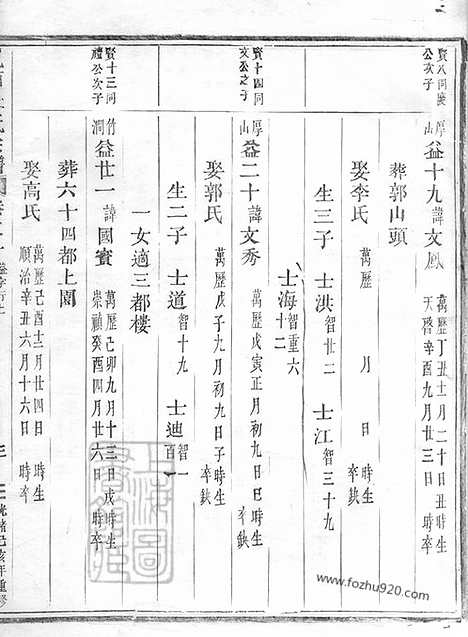 賢八同慶
公次子
厚山 益十九 諱文鳳 萬歷丁丑十一月二十日丑時生
天啓辛酉九月廿三日 時卒
葬郭山頭
娶李氏 萬歷 月 日 時生
卒缺
生三子 士洪 智廿二 士江 智三十九
士海 智重六十二
賢十四同
文公之子
厚山 益二十 諱文秀 萬歷戊寅正月初九日巳時生
卒缺
娶郭氏 萬歷戊子九月初九日子時生
卒缺
生二子 士道 智十九 士迪 智一百
一女適三都樓
賢十三同
禮公次子
竹澗 益廿一 諱國賓 萬歷己卯九月十三日戌時生
崇禎癸酉四月廿六日 時卒
葬六十四都上園
娶高氏 萬歷己酉十二月廿四日 時生
順治辛丑六月十六日 時卒
光緒己亥年重修
www.fozhu920.com